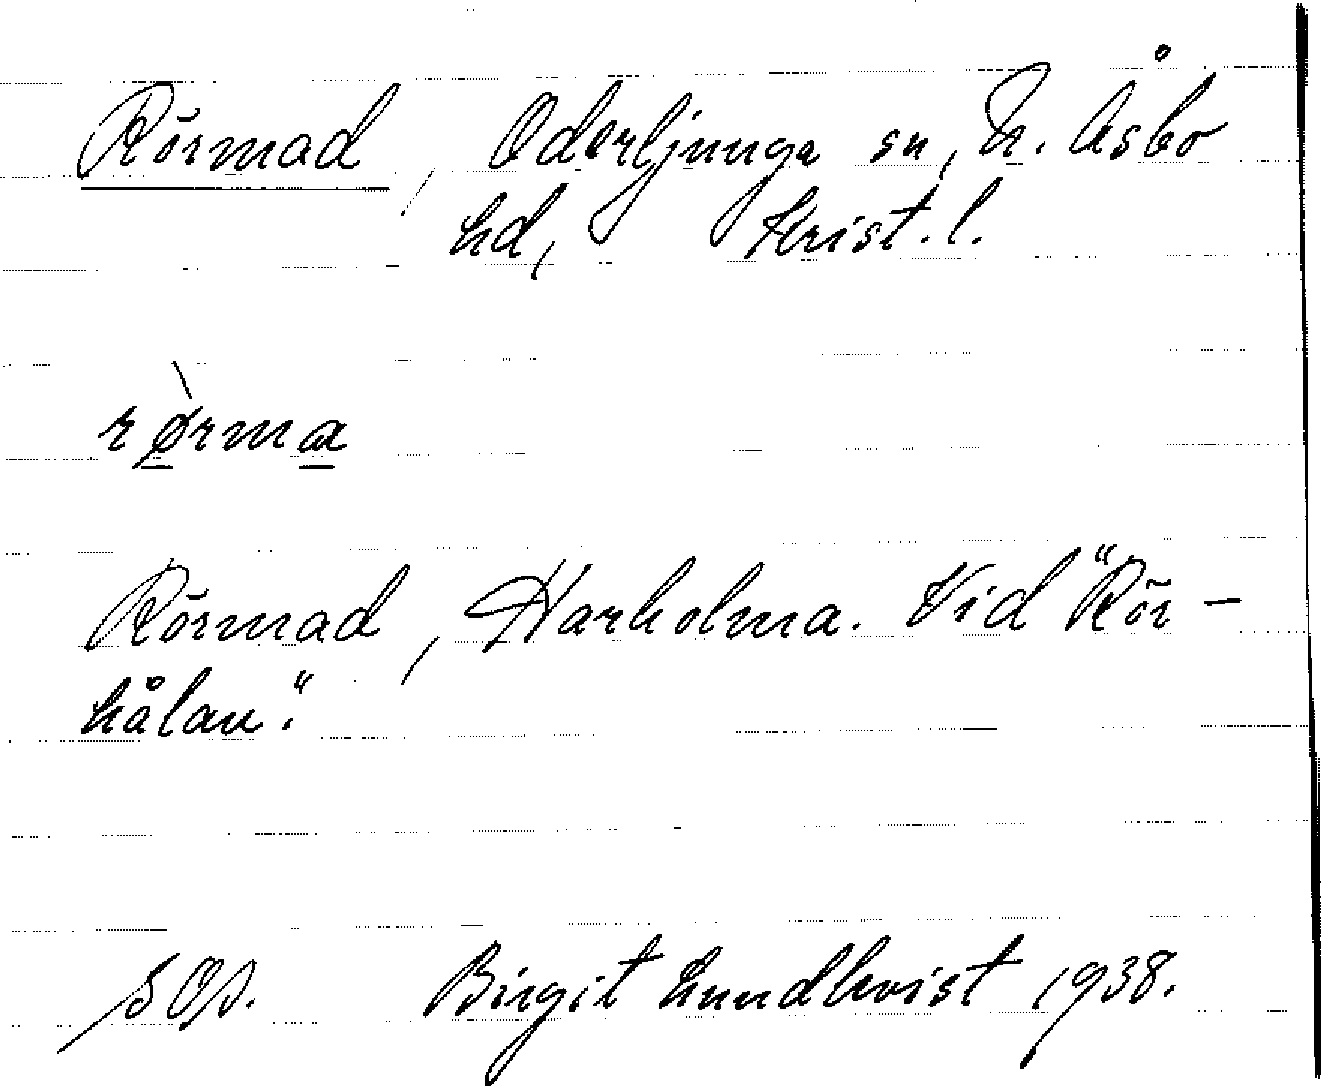 Rörmad, Oderljunga sn, N. Åsbo
hd, Krist. l.
rø̀rma
Rörmad, Harholma. Vid "Rör-
hålan".
Birgit Lundkvist 1938.